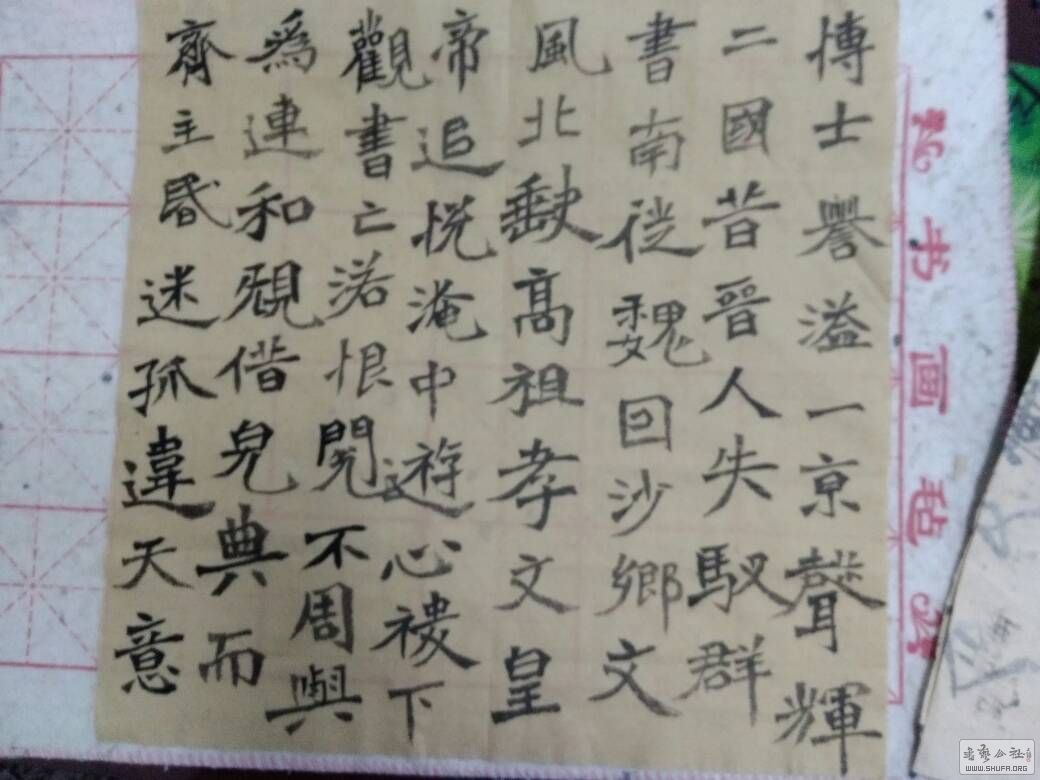 博士譽溢一京聲輝
二國昔晉人失馭群
書南徙魏回沙鄉文
風北缺高祖孝文皇
帝追悅淹中遊心稷下
觀書亡落恨閱不周與
爲連和規借皃典而
齊主昏迷孤違天意
书画毡
书艺公社
WWW.SHUFA.ORG